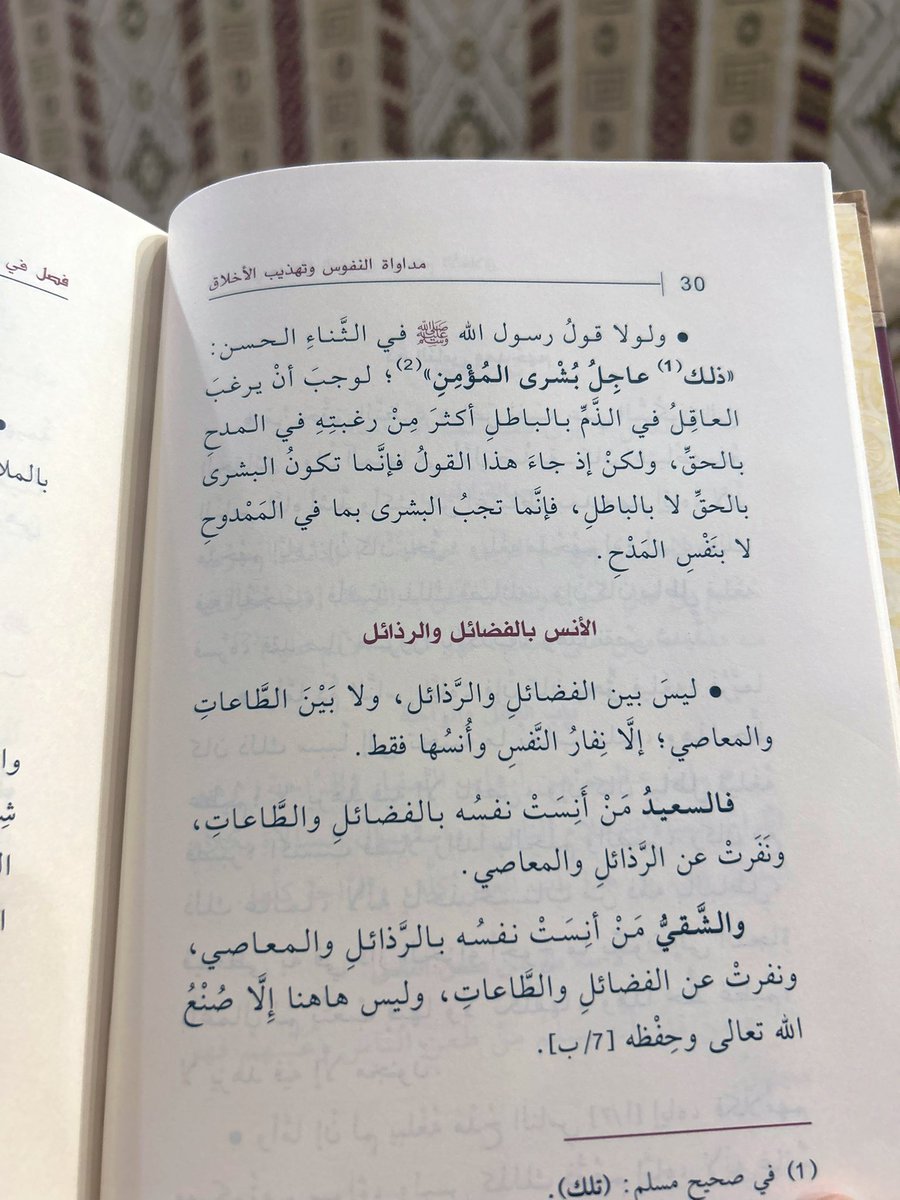 فصل في
بالملا
مداواة النفوس وتهذيب الأخلاق
30
• ولولا قولُ رسول الله ﷺ في الثَّناءِ الحسن:
«ذلك(1) عاجِلُ بُشْرى المُؤْمِنِ»(2)؛ لوجبَ أنْ يرغبَ
العاقِلُ في الذَّمِّ بالباطلِ أكثرَ مِنْ رغبتِهِ في المدحِ
بالحقِّ، ولكنْ إذ جاءَ هذا القولُ فإنَّما تكونُ البشرى
بالحقِّ لا بالباطلِ، فإنَّما تجبُ البشرى بما في المَمْدوحِ
لا بنَفْسِ المَدْحِ.
الأنس بالفضائل والرذائل
• ليسَ بين الفضائلِ والرَّذائل، ولا بَيْنَ الطَّاعاتِ
والمعاصي؛ إلَّا نِفارُ النَّفسِ وأُنسُها فقط.
فالسعيدُ مَنْ أَنِسَتْ نفسُه بالفضائلِ والطَّاعاتِ،
ونَفَرتْ عن الرَّذائلِ والمعاصي.
والشَّقيُّ مَنْ أنِسَتْ نفسُه بالرَّذائلِ والمعاصي،
ونفرتْ عن الفضائلِ والطَّاعاتِ، وليس هاهنا إِلَّا صُنْعُ
الله تعالى وحِفْظه [7/ب].
(1) في صحيح مسلم: (تلك).